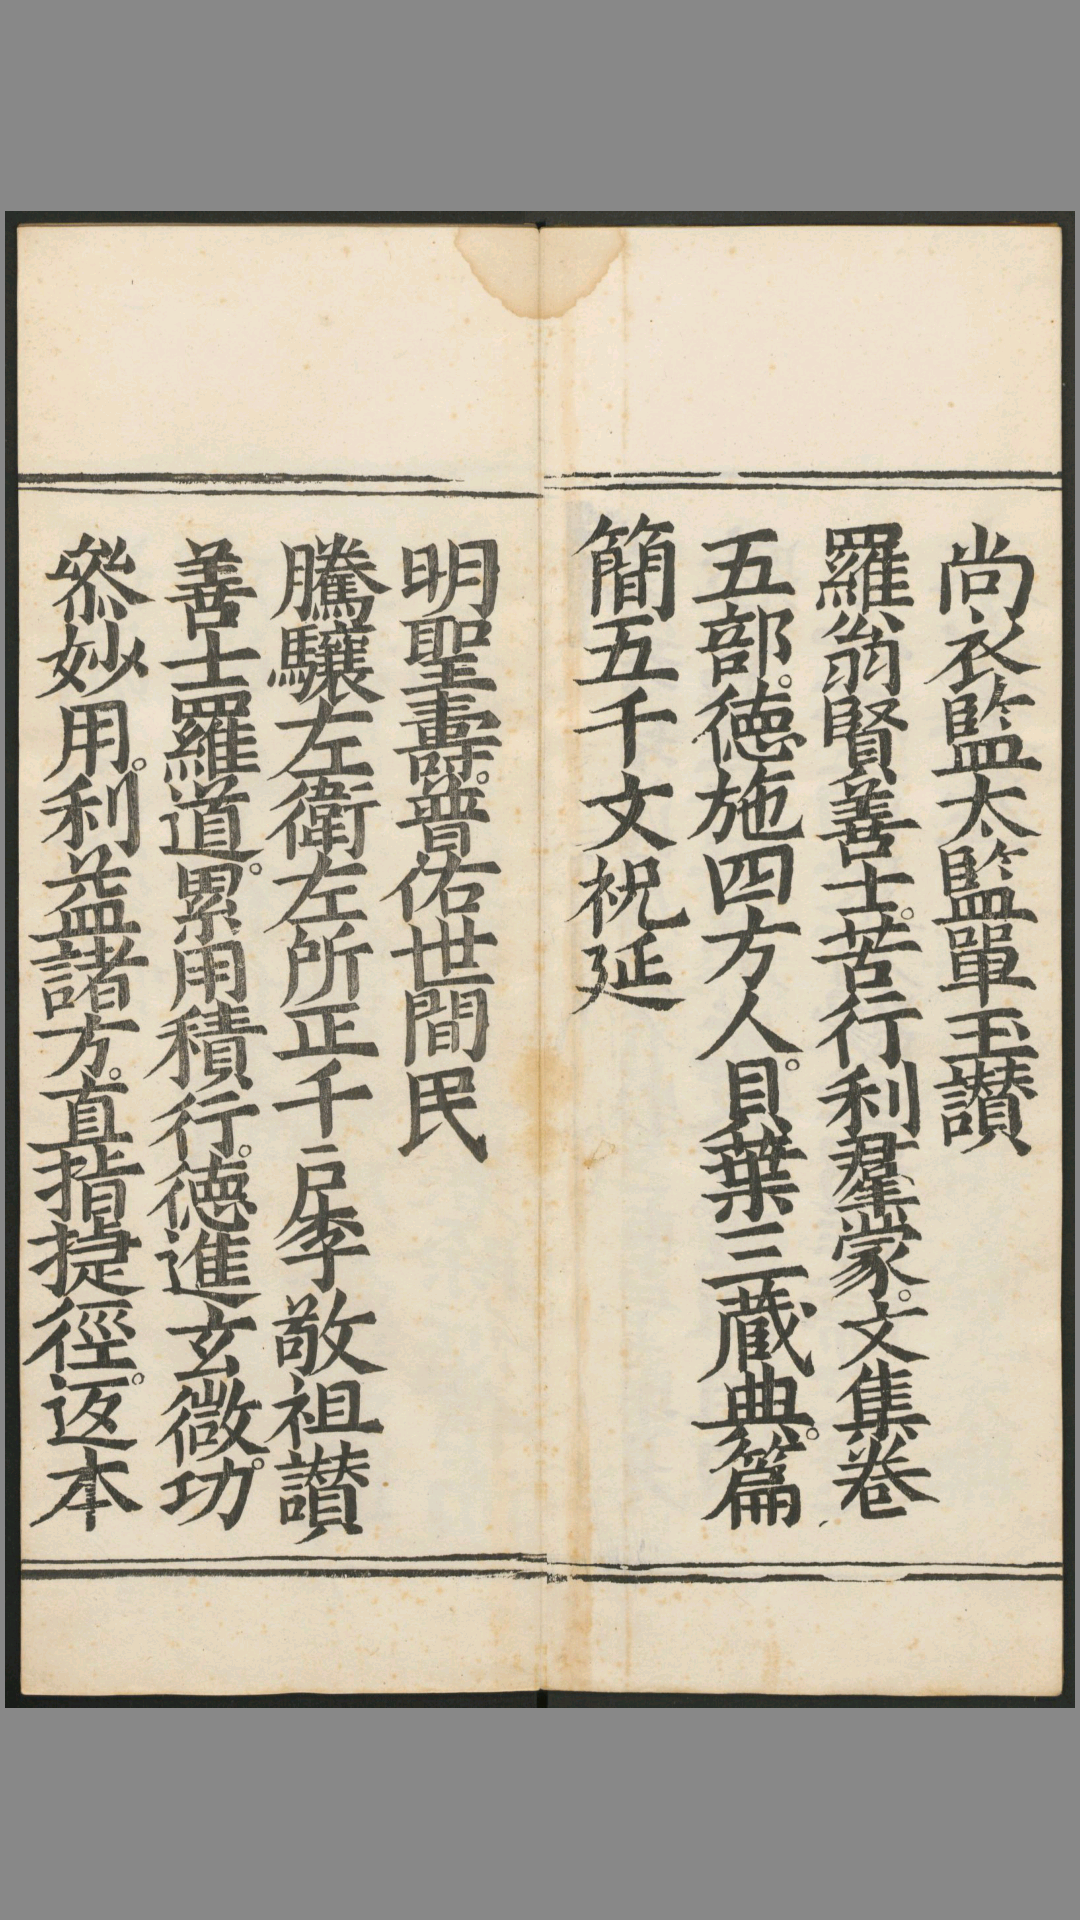 尚衣監太監單玉讃
羅翁賢善士。苦行利羣蒙。文集卷
五部。徳施四方人。貝葉三蔵典。篇
簡五千文祝延
明聖壽。普佑世間民
騰驤左衛左所正千戶李敬祖讃
善士羅道。累用積行。徳進玄微功。
叅妙用。利益諸方。直指捷徑。返本